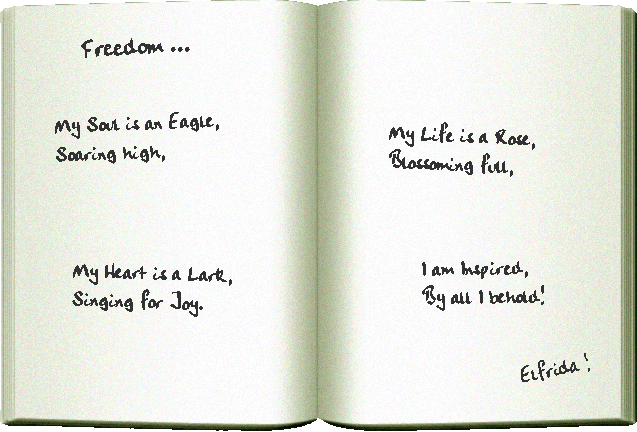 Freedom ...
My Soul is an Eagle,
Soaring high,
My Heart is a Lark,
Singing for Joy.
My Life is a Rose,
Blossoming full,
I am Inspired,
By all I behold!
Elfrida!